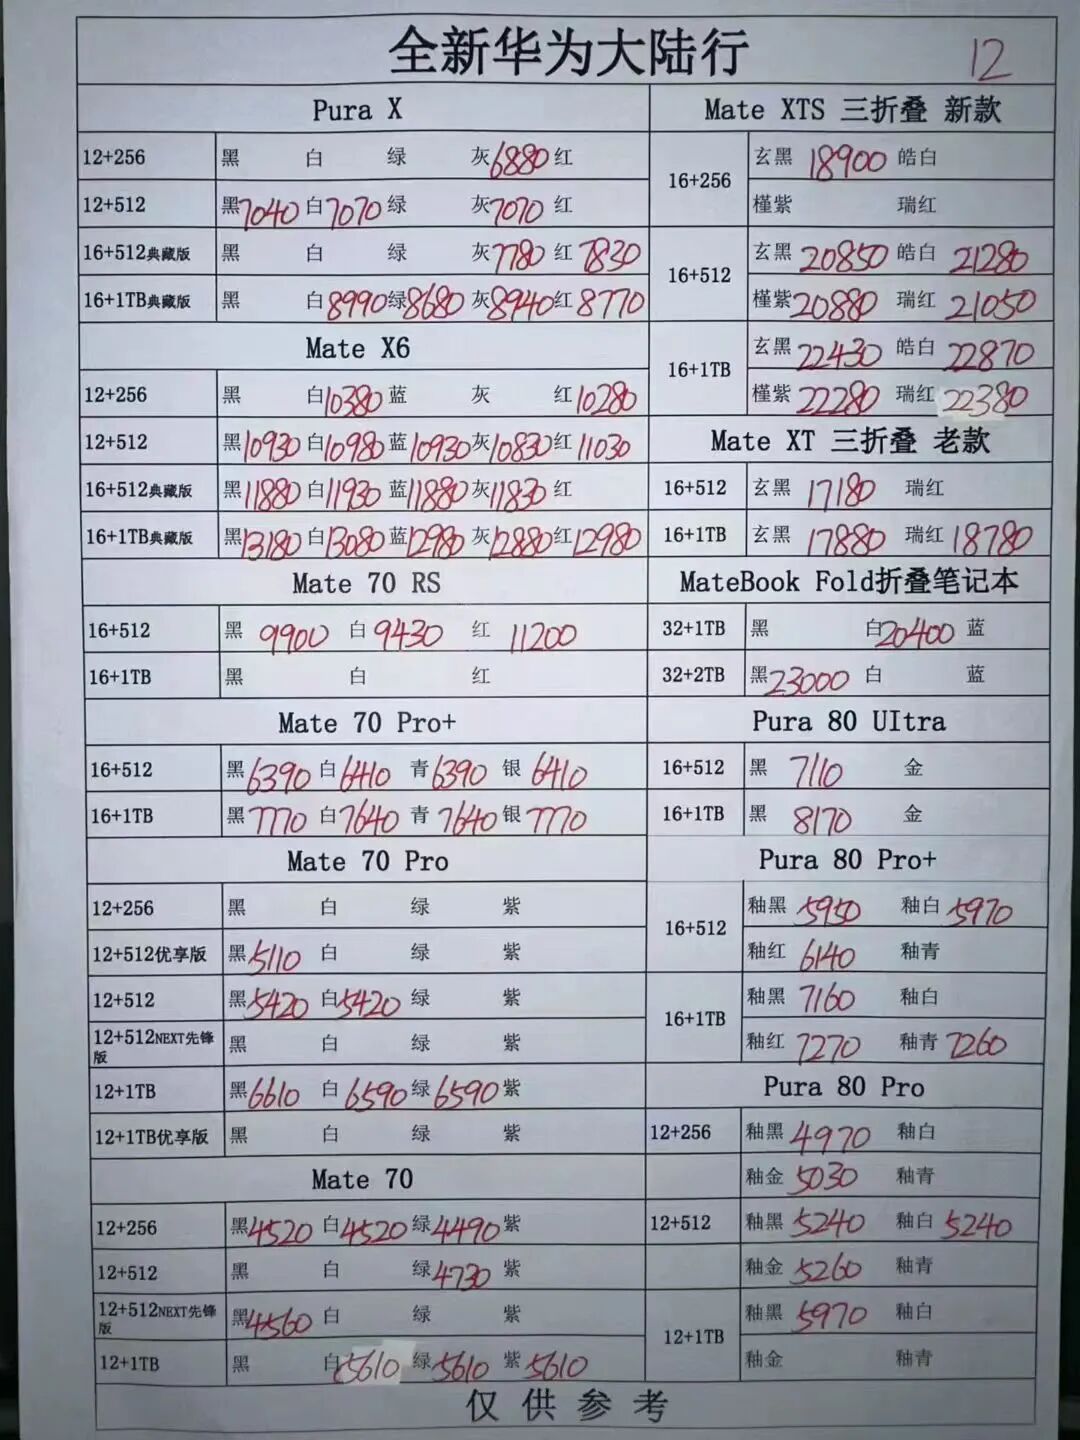 全新华为大陆行 12
Pura X
12+256 黑 白 绿 灰6880 红
12+512 黑7040 白7070 绿 灰7070 红
16+512典藏版 黑 白 绿 灰7780 红 7830
16+1TB典藏版 黑 白8990 绿8680 灰8940 红 8770
Mate X6
12+256 黑 白10380 蓝 灰 红10280
12+512 黑10930 白10980 蓝10930 灰10830 红11030
16+512典藏版 黑11880 白11930 蓝11880 灰11830 红
16+1TB典藏版 黑13180 白13080 蓝12980 灰12880 红12980
Mate 70 RS
16+512 黑 9900 白 9430 红 11200
16+1TB 黑 白 红
Mate 70 Pro+
16+512 黑6390 白6410 青6390 银 6410
16+1TB 黑7770 白7640 青 7640 银 7770
Mate 70 Pro
12+256 黑 白 绿 紫
12+512优享版 黑5110 白 绿 紫
12+512 黑5420 白5420 绿 紫
12+512NEXT先锋版 黑 白 绿 紫
12+1TB 黑6610 白 6590 绿 6590 紫
12+1TB优享版 黑 白 绿 紫
Mate 70
12+256 黑4520 白4520 绿4490 紫
12+512 黑 白 绿4730 紫
12+512NEXT先锋版 黑4560 白 绿 紫
12+1TB 黑 白5610 绿5610 紫5610
Mate XTS 三折叠 新款
16+256 玄黑 18900 皓白
槿紫 瑞红
16+512 玄黑 20850 皓白 21280
槿紫20880 瑞红 21050
16+1TB 玄黑 22430 皓白 22870
槿紫 22280 瑞红 22380
Mate XT 三折叠 老款
16+512 玄黑 17180 瑞红
16+1TB 玄黑 17880 瑞红 18780
MateBook Fold折叠笔记本
32+1TB 黑 白20400 蓝
32+2TB 黑23000 白 蓝
Pura 80 UItra
16+512 黑 7110 金
16+1TB 黑 8170 金
Pura 80 Pro+
16+512 釉黑 5950 釉白 5970
釉红 6140 釉青
16+1TB 釉黑 7160 釉白
釉红 7270 釉青 7260
Pura 80 Pro
12+256 釉黑 4970 釉白
釉金 5030 釉青
12+512 釉黑 5240 釉白 5240
釉金 5260 釉青
12+1TB 釉黑 5970 釉白
釉金 釉青
仅供参考